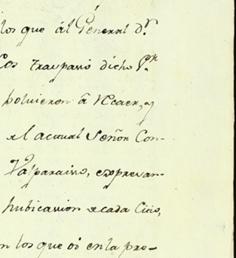 los que ál General d.ⁿ
los traspasó dicho S.ʳ
bolvieron á recaer, y
el actual Señor Con-
Valparaiso, expresan
hubicacion de cada Citio,
n los que oi en la pro-